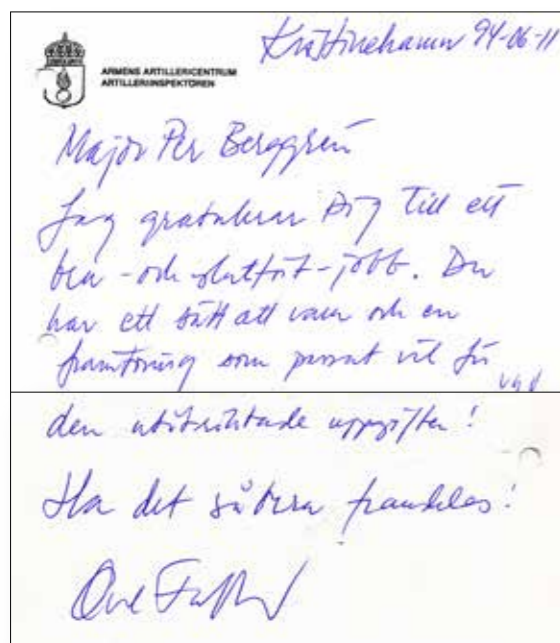 ARMENS ARTILLERICENTRUM
ARTILLERIINSPEKTÖREN
Kristinehamn 94-06-11
Major Per Berggren
Jag gratulerar Dig till ett
bra - och slutfört - jobb. Du
har ett sätt att vara och en
framtoning som passat väl för
den utåtriktade uppgiften!
Ha det så bra framdeles!